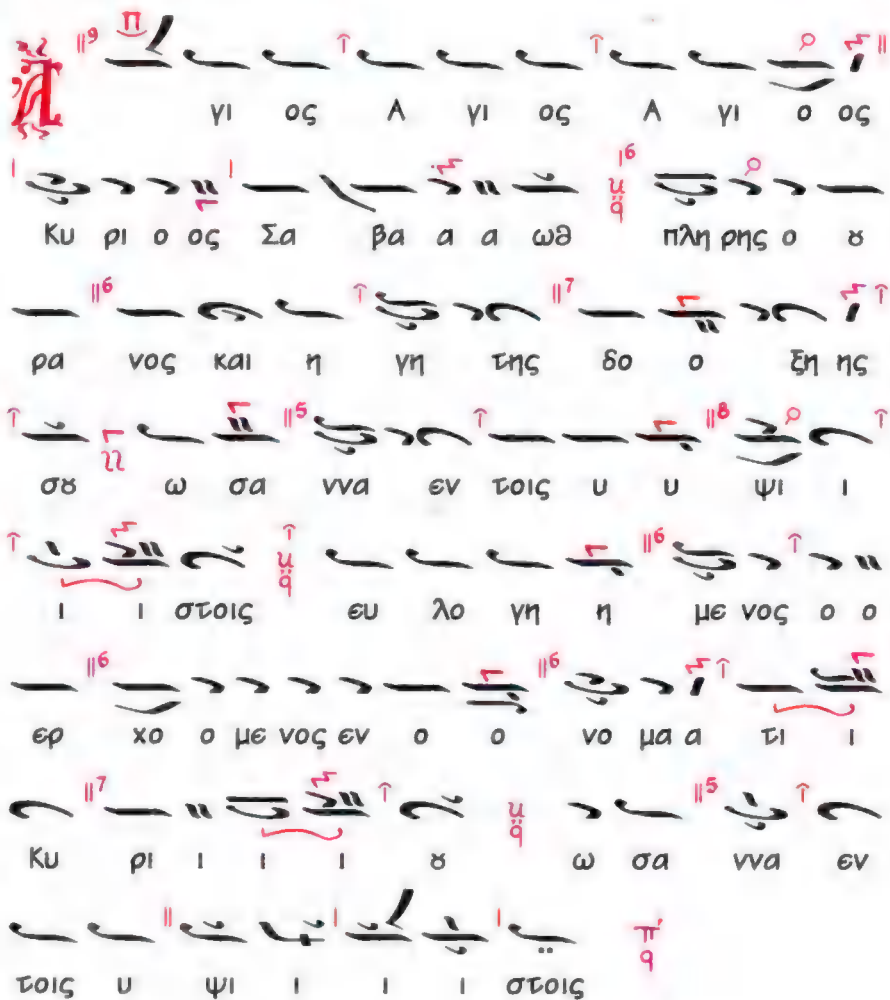 Α γι ος Α γι ος Α γι ο ος
Κυ ρι ο ος Σα βα α α ωθ πλη ρης ο ȣ
ρα νος και η γη της δο ο ξη ης
σȣ ω σα ννα εν τοις υ υ ψι ι
ι ι στοις ευ λο γη η με νος ο ο
ερ χο ο με νος εν ο ο νο μα α τι ι
Κυ ρι ι ι ι ȣ ω σα ννα εν
τοις υ ψι ι ι ι στοις